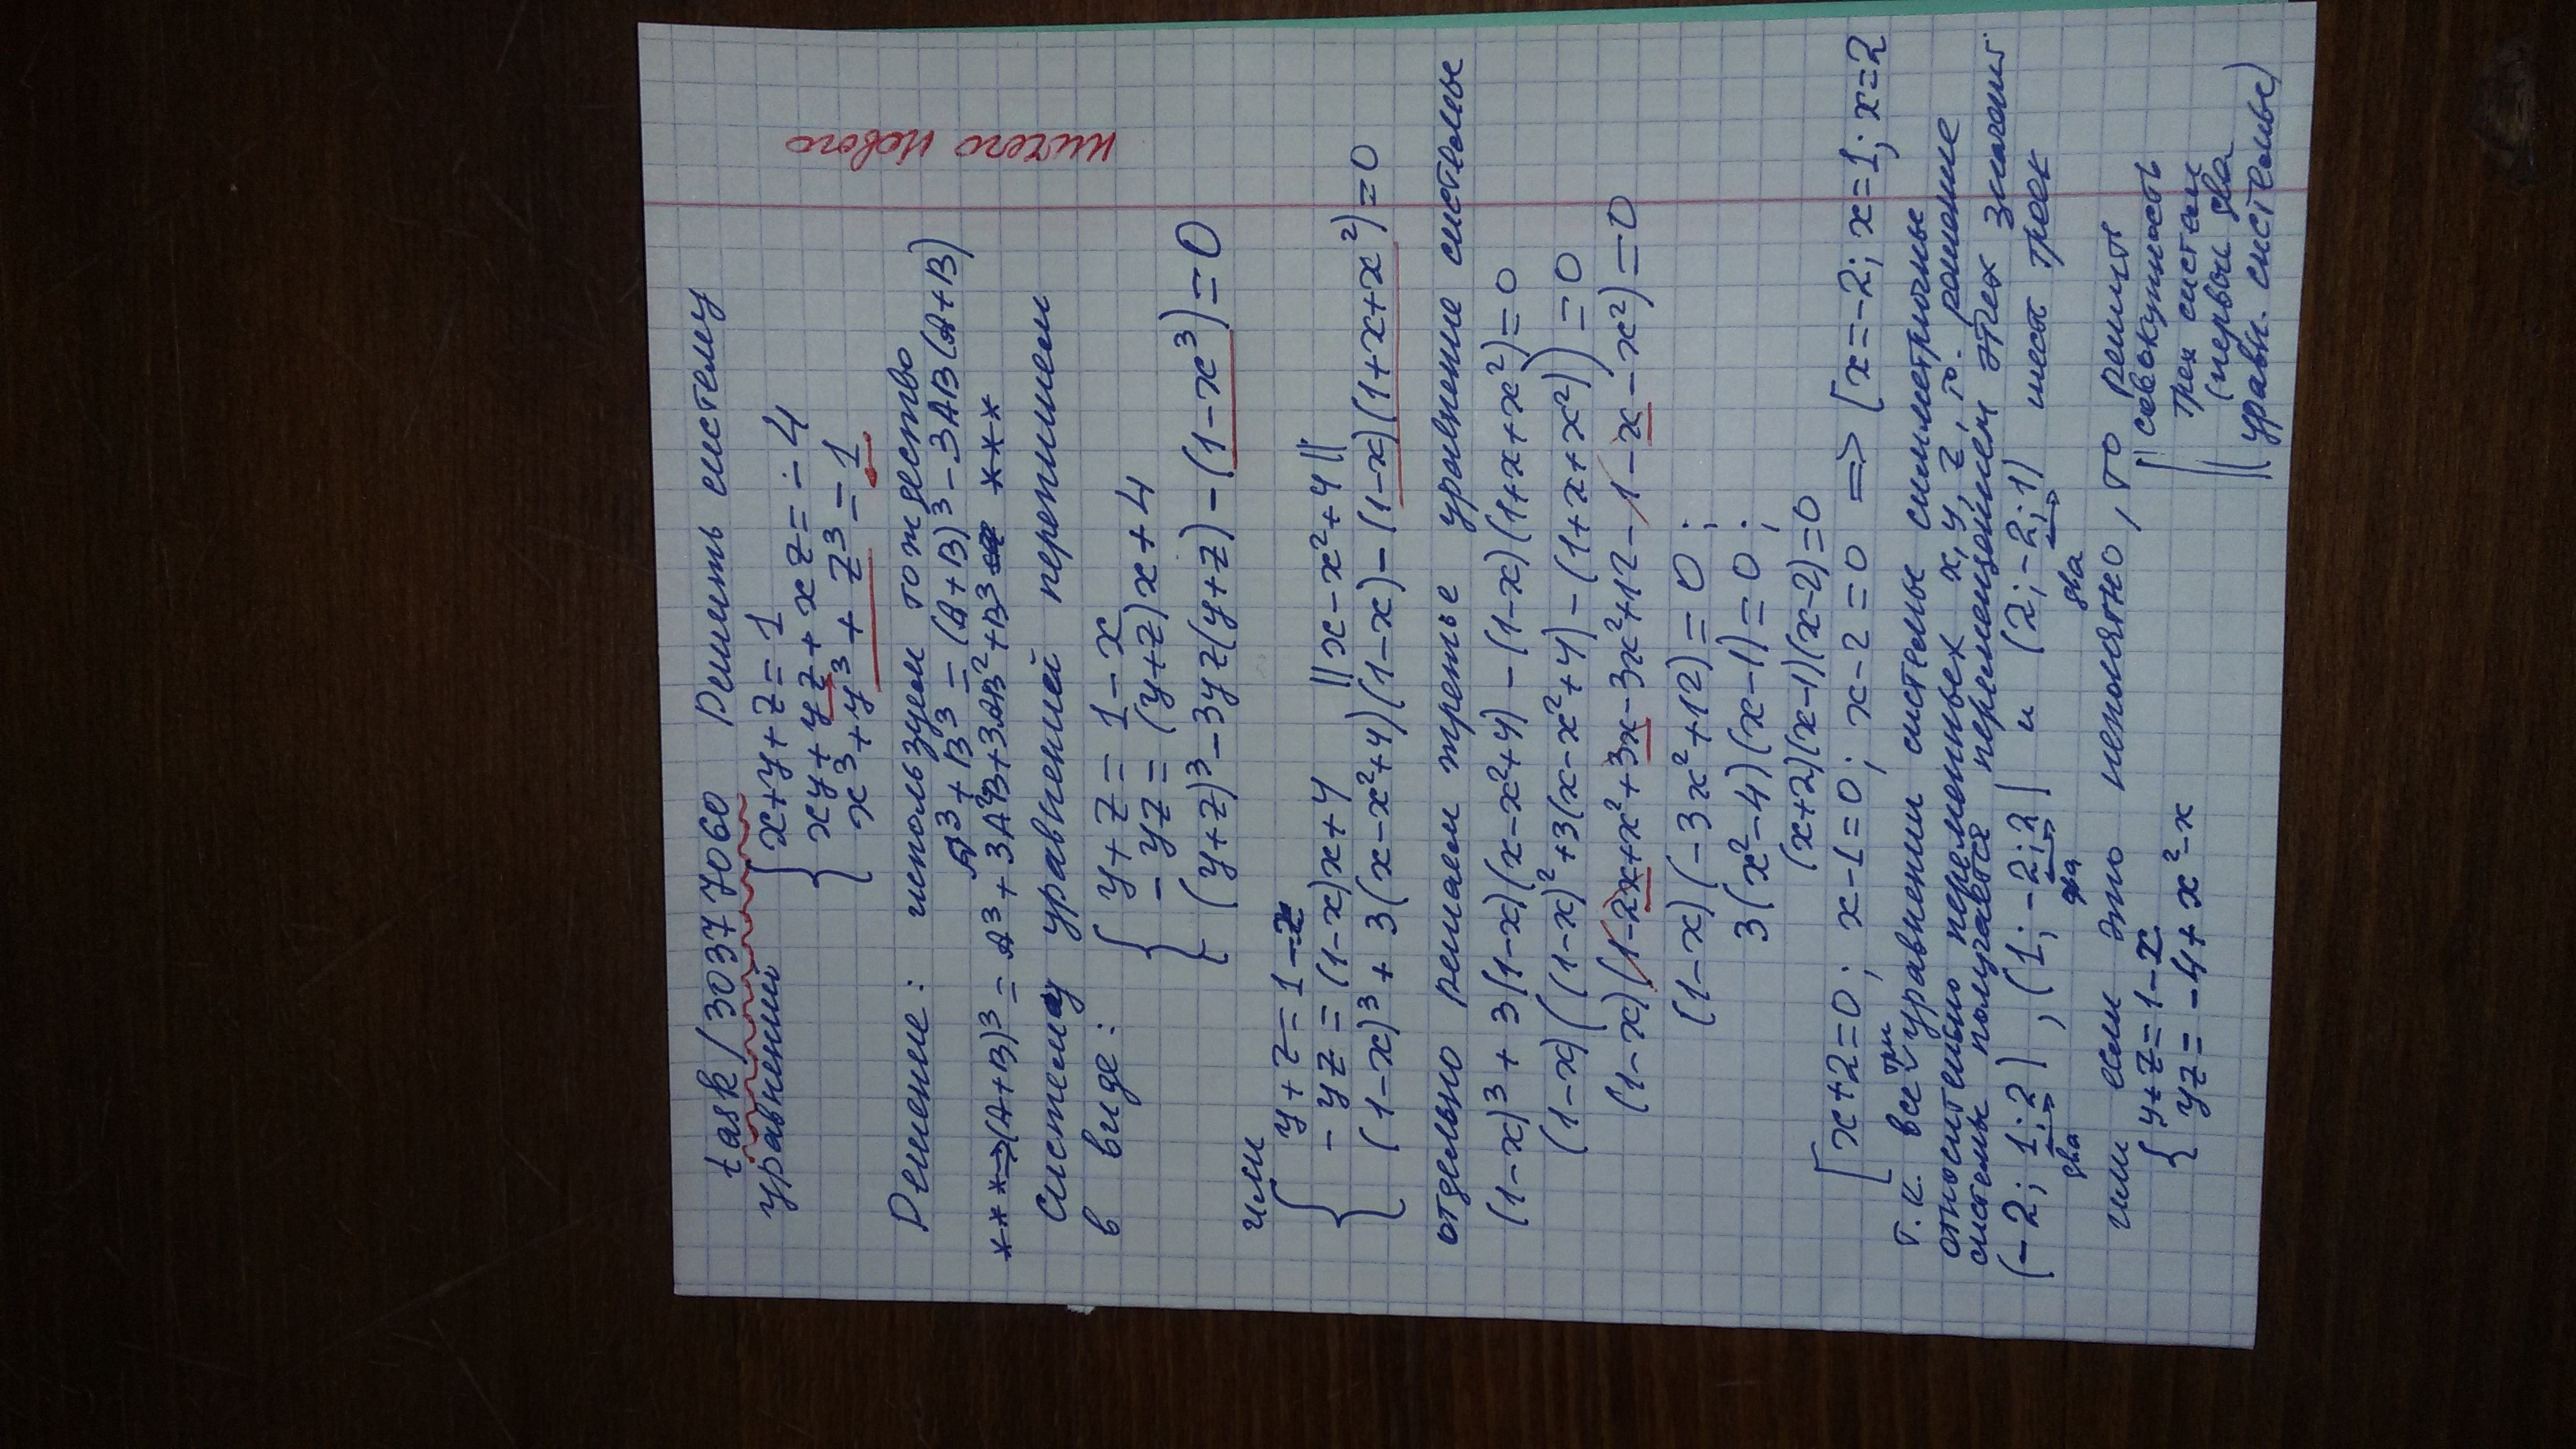 task/30377060 Решить систему
уравнений
{ x+y+z=1
xy+yz+xz=-4
x³+y³+z³=1
ничего нового
Решение: используем тождество
A³+B³=(A+B)³-3AB(A+B)
***(A+B)³=A³+3A²B+3AB²+B³ ***
Систему уравнений перепишем
в виде:
{ y+z=1-x
-yz=(y+z)x+4
(y+z)³-3yz(y+z)-(1-x³)=0
или
{ y+z=1-x
-yz=(1-x)x+4 ||x-x²+4||
(1-x)³+3(x-x²+4)(1-x)-(1-x)(1+x+x²)=0
отдельно решаем третье уравнение системы
(1-x)³+3(1-x)(x-x²+4)-(1-x)(1+x+x²)=0
(1-x)((1-x)²+3(x-x²+4)-(1+x+x²))=0
(1-x)(1-2x+x²+3x-3x²+12-1-x-x²)=0
(1-x)(-3x²+12)=0;
3(x²-4)(x-1)=0;
(x+2)(x-1)(x-2)=0
[x+2=0; x-1=0; x-2=0 => [x=-2; x=1; x=2
т.к. все три уравнении системы симметричные
относительно переменных x,y,z, то решение
системы получается перемещением этих значений
(-2; 1; 2), (1; -2; 2) и (2; -2; 1) шест троек
два два два
или если это непонятно, то решить
{ y+z=1-x
yz=-4+x²-x
совокупность
трех систем
(первой два
уравн. системы)